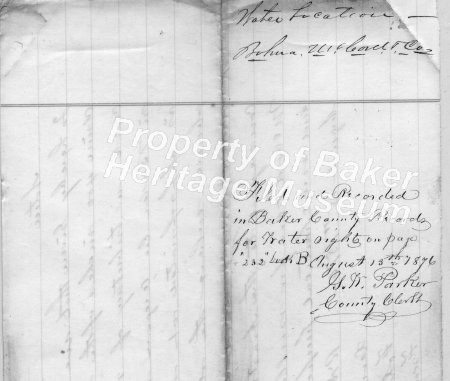 Water Location —
& Co
Property of Baker
Heritage Museum
Filed and Recorded
in Baker County Records
for Water rights on page
"232" Book B August 15th 1876
Parker
County Clerk